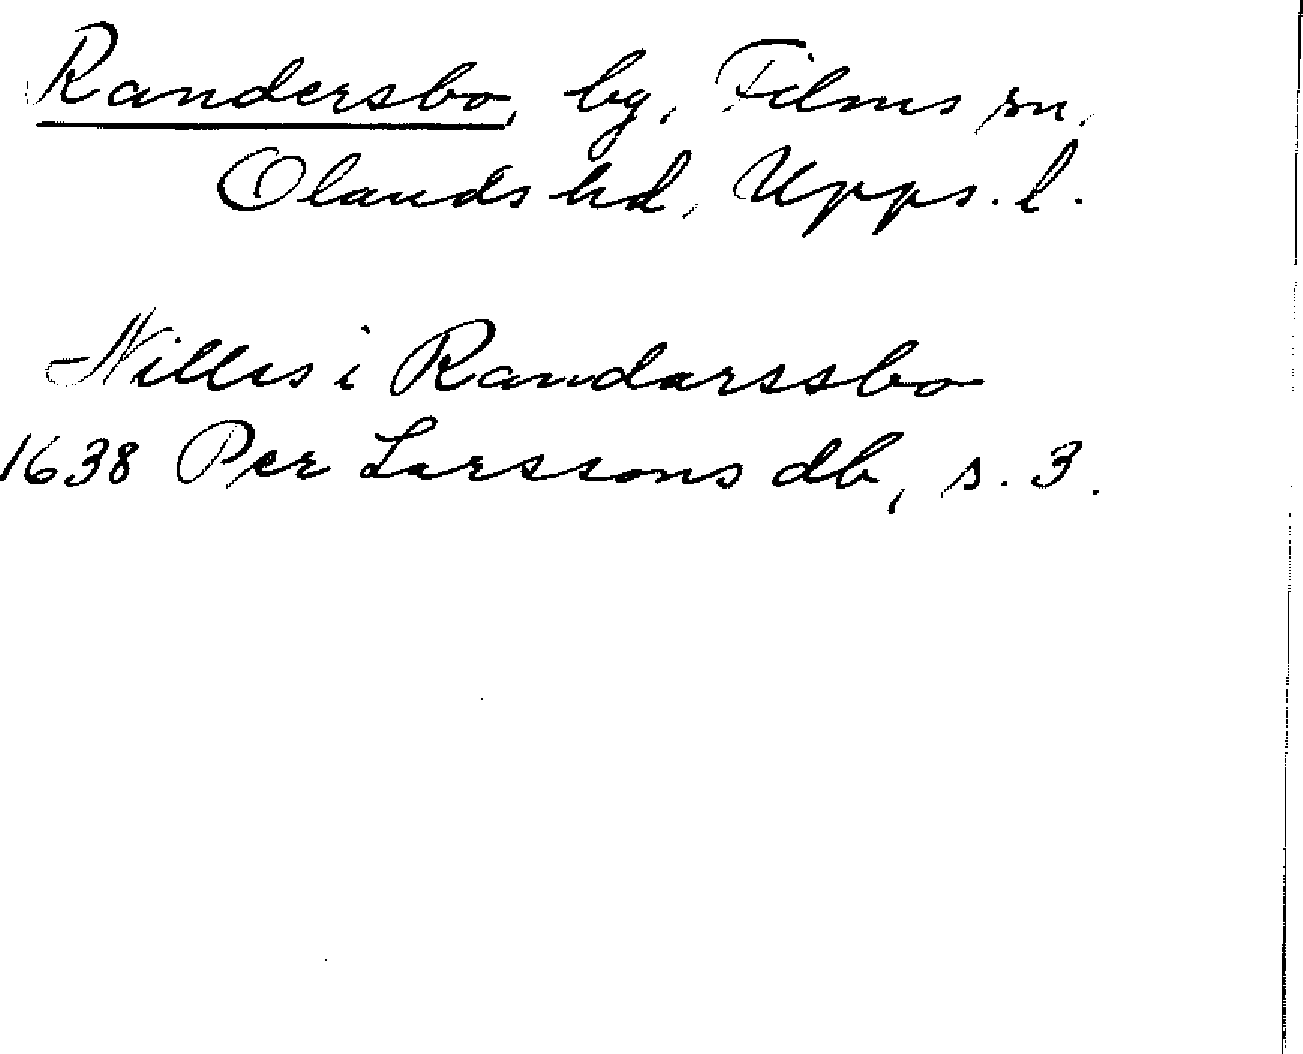 Randersbo, by, Films sn,
Olands hd, Upps. l.
Nilles i Randarssbo
1638 Per Larssons db, s. 3.